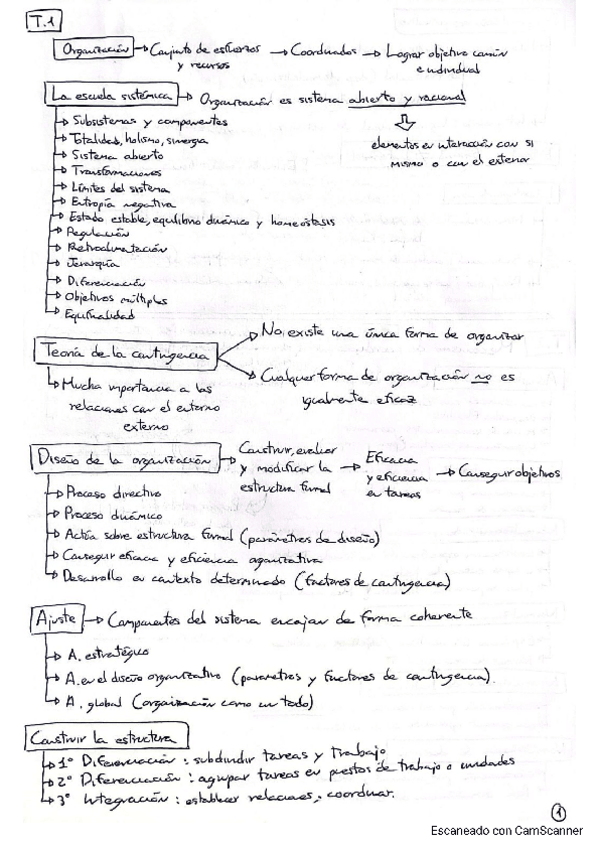 T.1
Organización → Conjunto de esfuerzos y recursos → Coordinados → Lograr objetivo común e individual
La escuela sistémica → Organización es sistema abierto y racional
elementos en interacción con si mismo o con el exterior
→ Subsistemas y componentes
→ Totalidad, holismo, sinergia
→ Sistema abierto
→ Transformaciones
→ Límites del sistema
→ Entropía negativa
→ Estado estable, equilibrio dinámico y homeóstasis
→ Regulación
→ Retroalimentación
→ Jerarquía
→ Diferenciación
→ Objetivos múltiples
→ Equifinalidad
Teoría de la contingencia
→ No existe una única forma de organizar
→ Cualquier forma de organización no es igualmente eficaz
→ Mucha importancia a las relaciones con el entorno externo
Diseño de la organización → Construir, evaluar y modificar la estructura formal → Eficacia y eficiencia en tareas → Conseguir objetivos
→ Proceso directivo
→ Proceso dinámico
→ Actúa sobre estructura formal (parámetros de diseño)
→ Conseguir eficacia y eficiencia organizativa
→ Desarrollo en contexto determinado (factores de contingencia)
Ajuste → Componentes del sistema encajan de forma coherente
→ A. estratégico
→ A. en el diseño organizativo (parámetros y factores de contingencia).
→ A. global (organización como un todo)
Construir la estructura
→ 1º Diferenciación: subdividir tareas y trabajo
→ 2º Diferenciación: agrupar tareas en puestos de trabajo o unidades
→ 3º Integración: establecer relaciones, coordinar.
1
Escaneado con CamScanner